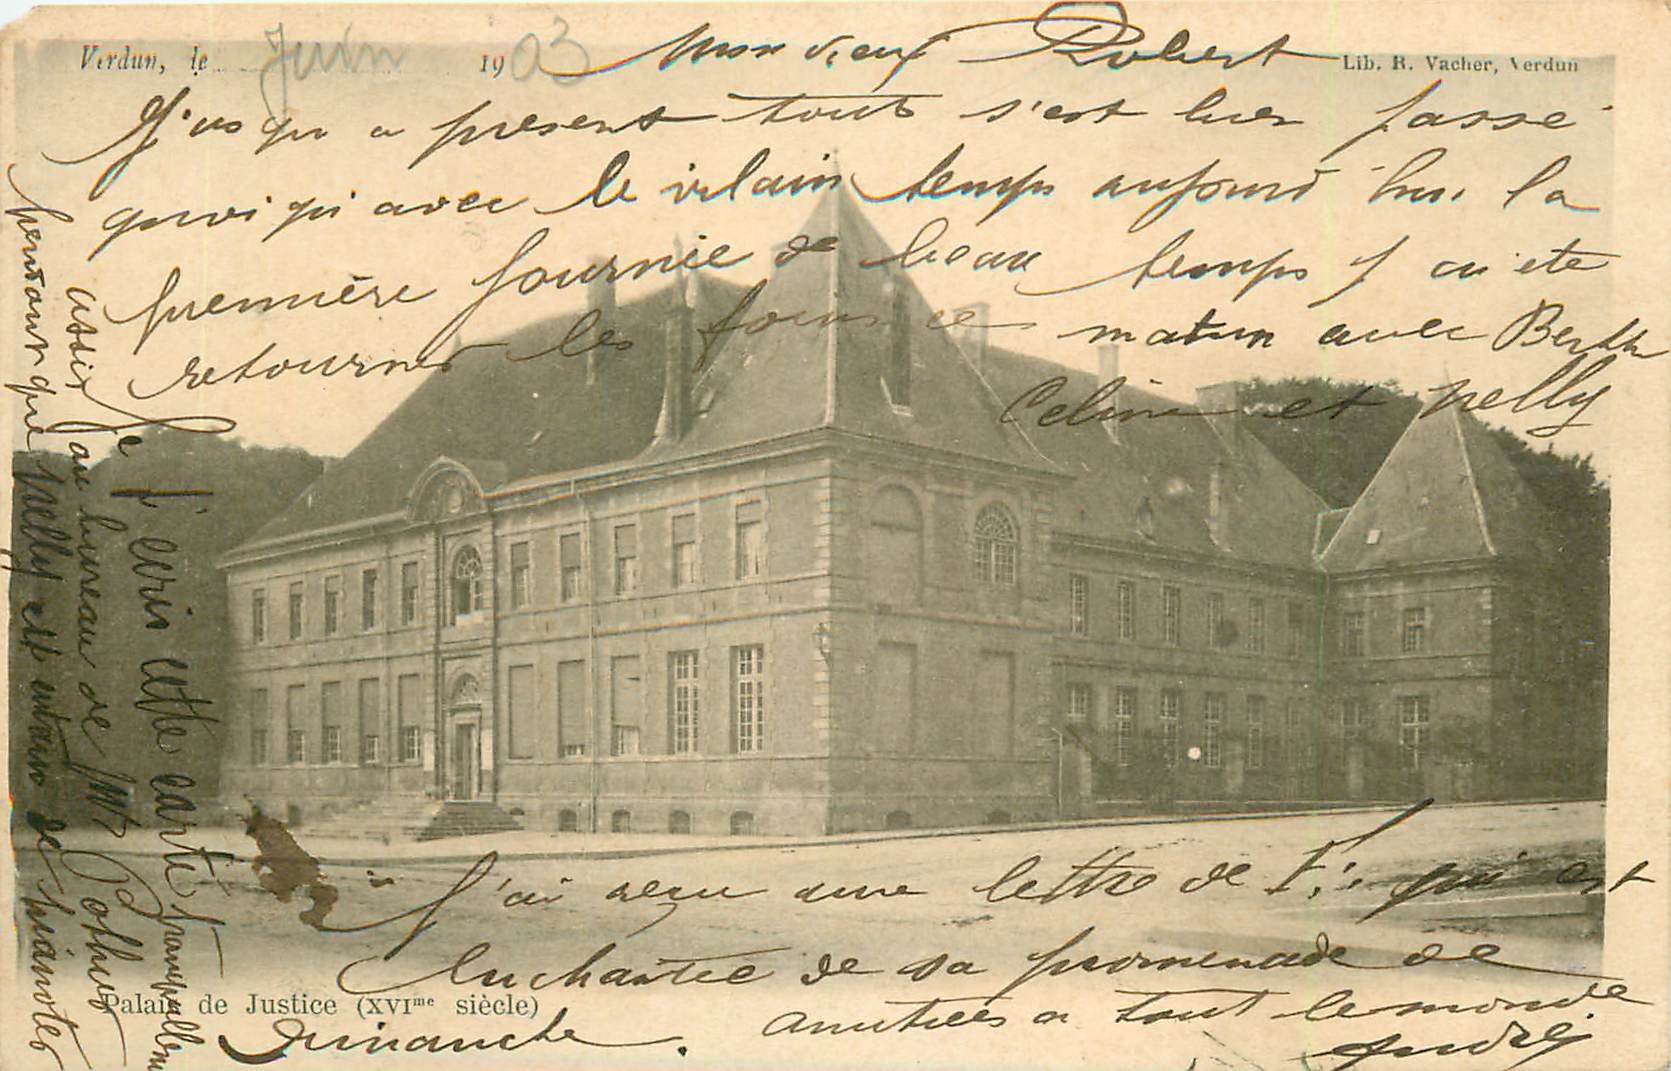 Verdun, le Juin 1903
Mon vieux Robert
Lib. R. Vacher, Verdun
J'usqu a present tout s'est bien passé
quoi qu'avec le vilain temps aujourd'hui la
première journée de beau temps j ai ete
retourner les foins ce matin avec Berthe
Celine et Nelly
Je j'ecris cette carte tranquillem
assis au bureau de Mr Pothus
pendant que Nelly est entrain de pianoter
J'ai reçu une lettre de F. qui est
enchantée de sa promenade de
Dimanche. Amitiées a tout le monde
André
Palais de Justice (XVIme siècle)